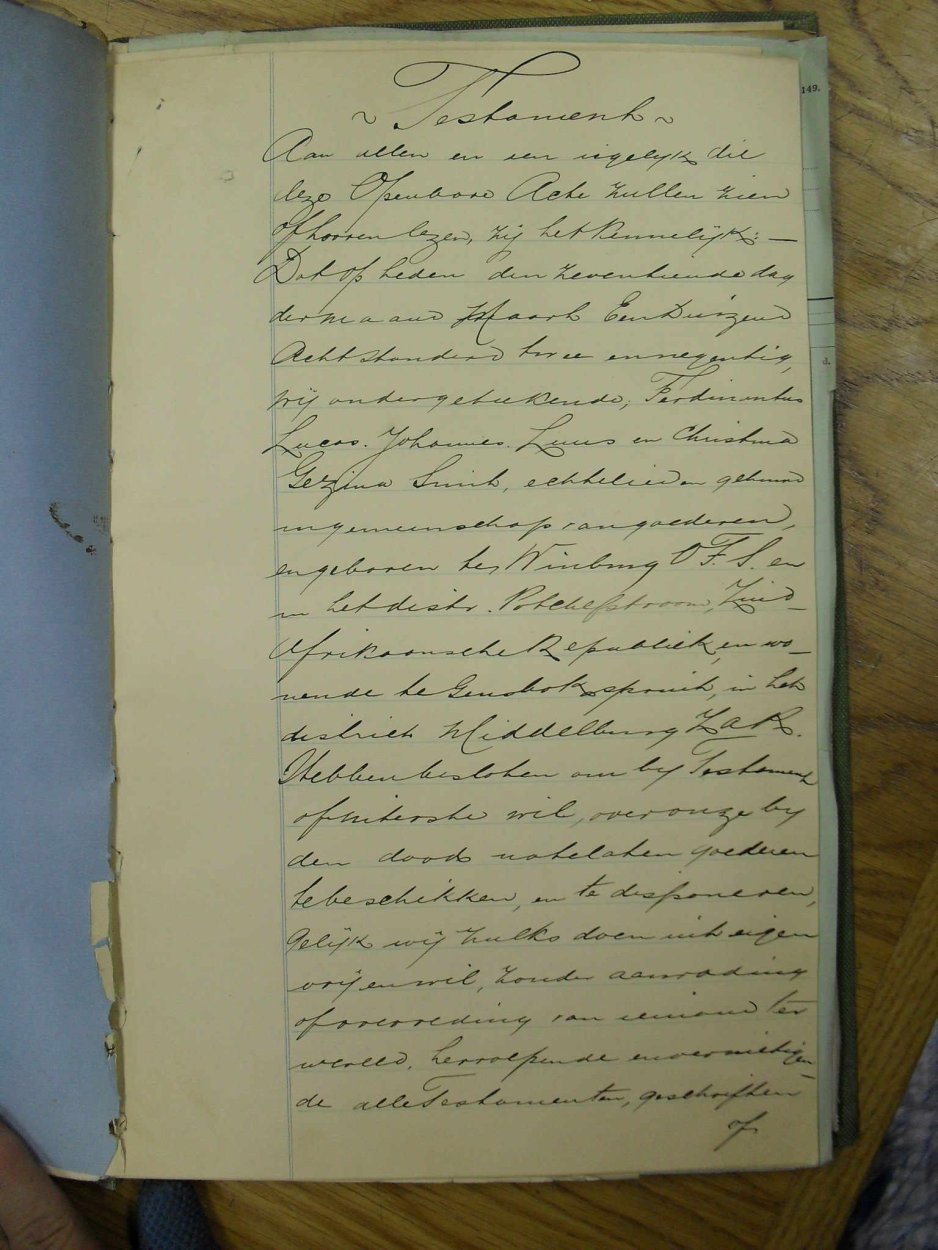 ~ Testament ~
149.
Aan allen en een iegelyk die
deze Openbare Acte zullen zien
of hooren lezen, zij het kennelijk: —
Dat op heden den zeventiende dag
der maand Maart Een Duizend
Acht honderd twee en negentig,
wij ondergetekende, Ferdinantus
Lucas. Johannes. Luus en Christina
Gezina Smit, echtelieden gehuwd
in gemeenschap van goederen,
en geboren te Winburg O.F.S. en
in het distr. Potchefstroom, Zuid
Afrikaansche Republiek, en wo-
nende te Gemsbokspruit, in het
district Middelburg ZAR.
Hebben besloten om by Testament
of uiterste wil, over onze by
den dood natelaten goederen
te beschikken, en te disponeren,
Gelijk wij zulks doen uit eigen
vrij en wil, zonder aanrading
of overreding van iemand ter
wereld, herroepende en vernietigen-
de alle Testamenten, geschriften
of
d.